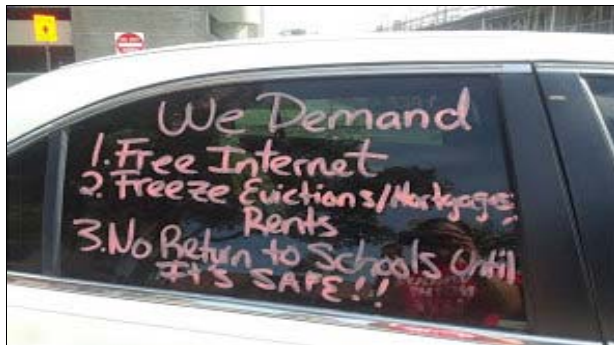 We Demand
1. Free Internet
2. Freeze Evictions/Mortgages
Rents
3. No Return to Schools Until
It's SAFE!!